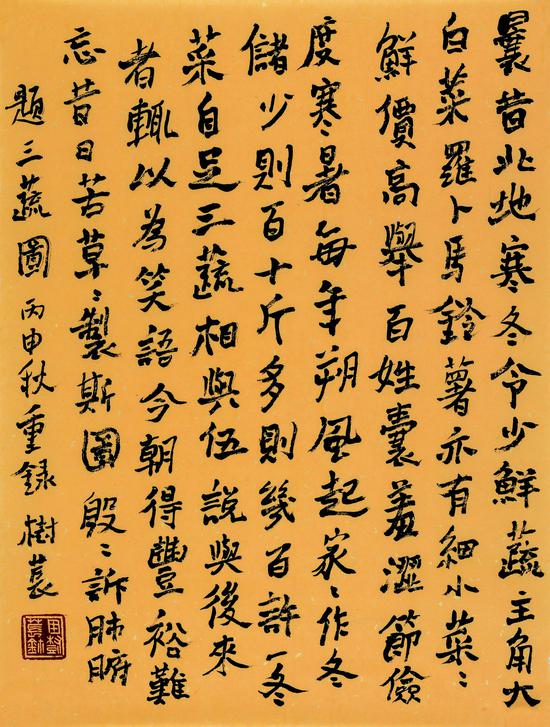 曩昔北地寒冬令少鮮蔬主角大
白菜羅卜馬鈴薯亦有細小菜〻
鮮價高舉百姓囊羞澀節儉
度寒暑每年朔風起家〻作冬
儲少則百十斤多則幾百許一冬
菜自足三蔬相與伍說與後來
者輒以為笑語今朝得豐裕難
忘昔日苦草〻製斯圖殷〻訴肺腑
題三蔬圖丙申秋重録樹萇
田樹萇鉨